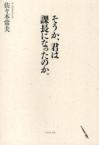 佐々木常夫
そうか、君は
課長になったのか。